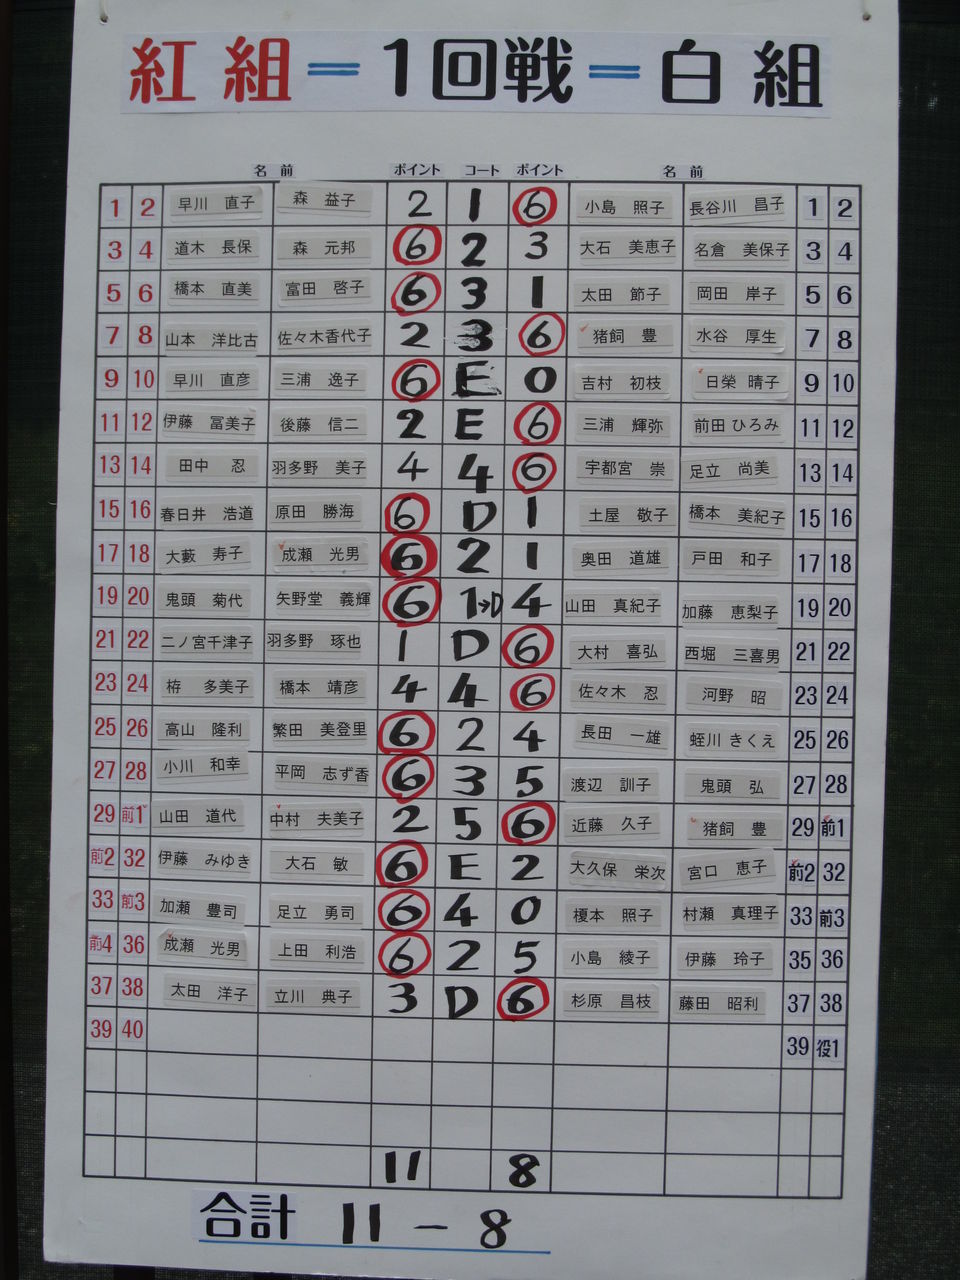 紅組＝1回戦＝白組
名前 ポイント コート ポイント 名前
1 2 早川 直子 森 益子 2 1 6 小島 照子 長谷川 昌子 1 2
3 4 道木 長保 森 元邦 6 2 3 大石 美恵子 名倉 美保子 3 4
5 6 橋本 直美 富田 啓子 6 3 1 太田 節子 岡田 岸子 5 6
7 8 山本 洋比古 佐々木香代子 2 3 6 猪飼 豊 水谷 厚生 7 8
9 10 早川 直彦 三浦 逸子 6 E 0 吉村 初枝 日榮 晴子 9 10
11 12 伊藤 冨美子 後藤 信二 2 E 6 三浦 輝弥 前田 ひろみ 11 12
13 14 田中 忍 羽多野 美子 4 4 6 宇都宮 崇 足立 尚美 13 14
15 16 春日井 浩道 原田 勝海 6 D 1 土屋 敬子 橋本 美紀子 15 16
17 18 大藪 寿子 成瀬 光男 6 2 1 奥田 道雄 戸田 和子 17 18
19 20 鬼頭 菊代 矢野堂 義輝 6 1→D 4 山田 真紀子 加藤 恵梨子 19 20
21 22 二ノ宮千津子 羽多野 琢也 1 D 6 大村 喜弘 西堀 三喜男 21 22
23 24 栫 多美子 橋本 靖彦 4 4 6 佐々木 忍 河野 昭 23 24
25 26 高山 隆利 繁田 美登里 6 2 4 長田 一雄 蛭川 きくえ 25 26
27 28 小川 和幸 平岡 志ず香 6 3 5 渡辺 訓子 鬼頭 弘 27 28
29 前1 山田 道代 中村 夫美子 2 5 6 近藤 久子 猪飼 豊 29 前1
前2 32 伊藤 みゆき 大石 敏 6 E 2 大久保 栄次 宮口 恵子 前2 32
33 前3 加瀬 豊司 足立 勇司 6 4 0 榎本 照子 村瀬 真理子 33 前3
前4 36 成瀬 光男 上田 利浩 6 2 5 小島 綾子 伊藤 玲子 35 36
37 38 太田 洋子 立川 典子 3 D 6 杉原 昌枝 藤田 昭利 37 38
39 40 39 役1
11 8
合計 11 － 8